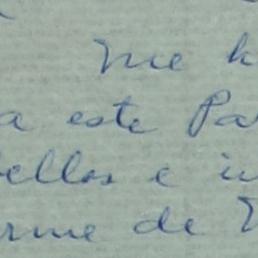 me h
a este Pa
ellos e i
rme de